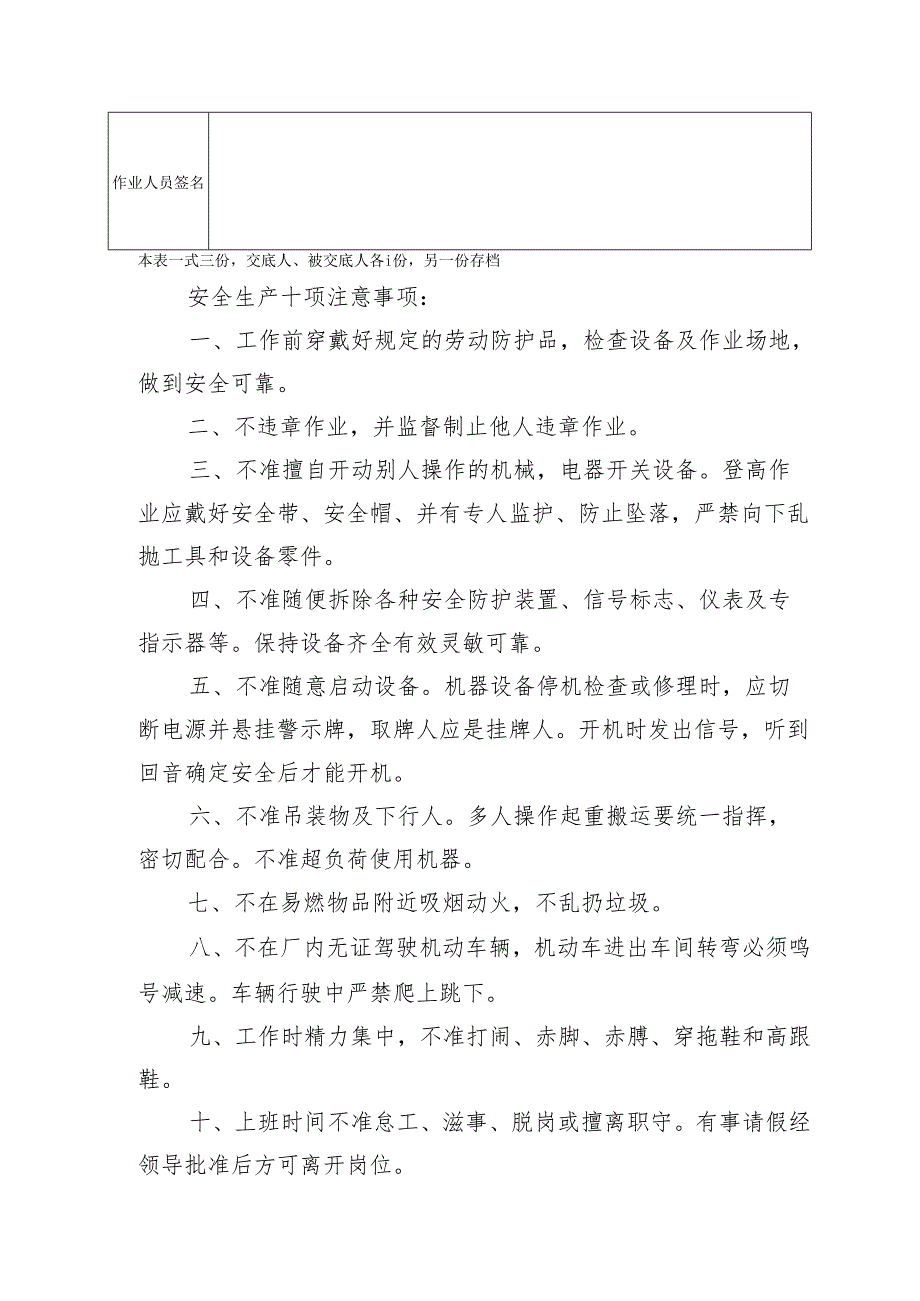 作业人员签名
本表一式三份，交底人、被交底人各i份，另一份存档
安全生产十项注意事项：
一、工作前穿戴好规定的劳动防护品，检查设备及作业场地，
做到安全可靠。
二、不违章作业，并监督制止他人违章作业。
三、不准擅自开动别人操作的机械，电器开关设备。登高作
业应戴好安全带、安全帽、并有专人监护、防止坠落，严禁向下乱
抛工具和设备零件。
四、不准随便拆除各种安全防护装置、信号标志、仪表及专
指示器等。保持设备齐全有效灵敏可靠。
五、不准随意启动设备。机器设备停机检查或修理时，应切
断电源并悬挂警示牌，取牌人应是挂牌人。开机时发出信号，听到
回音确定安全后才能开机。
六、不准吊装物及下行人。多人操作起重搬运要统一指挥，
密切配合。不准超负荷使用机器。
七、不在易燃物品附近吸烟动火，不乱扔垃圾。
八、不在厂内无证驾驶机动车辆，机动车进出车间转弯必须鸣
号减速。车辆行驶中严禁爬上跳下。
九、工作时精力集中，不准打闹、赤脚、赤膊、穿拖鞋和高跟
鞋。
十、上班时间不准怠工、滋事、脱岗或擅离职守。有事请假经
领导批准后方可离开岗位。